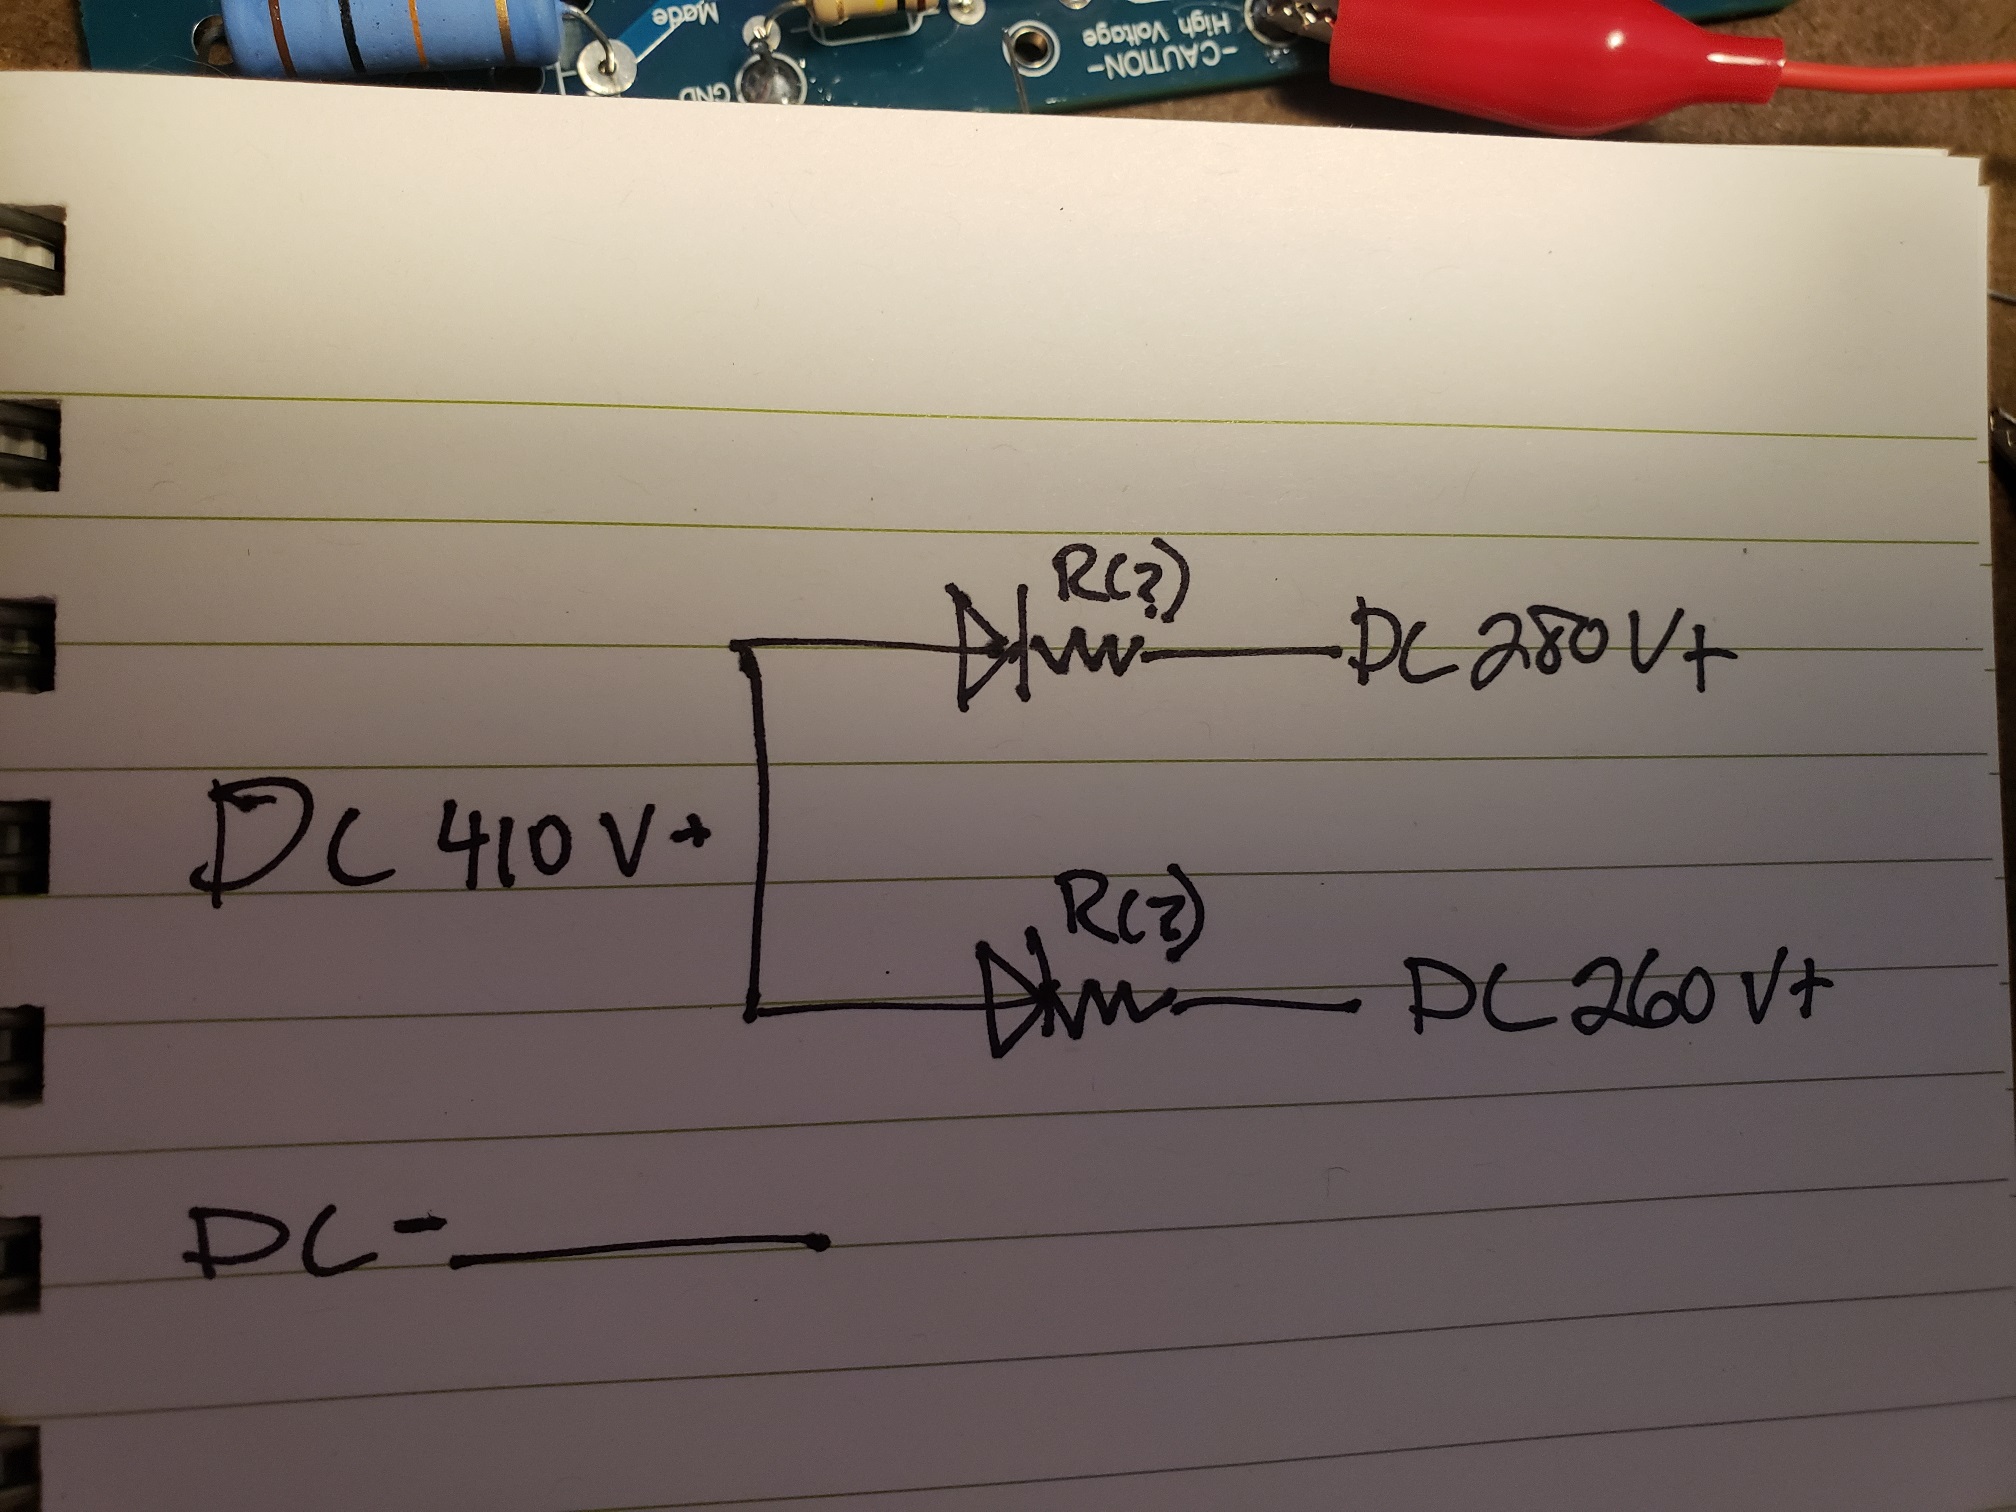 Made
GND
-CAUTION-
High Voltage
R(?)
DC 280 V+
DC 410 V+
R(?)
DC 260 V+
DC -